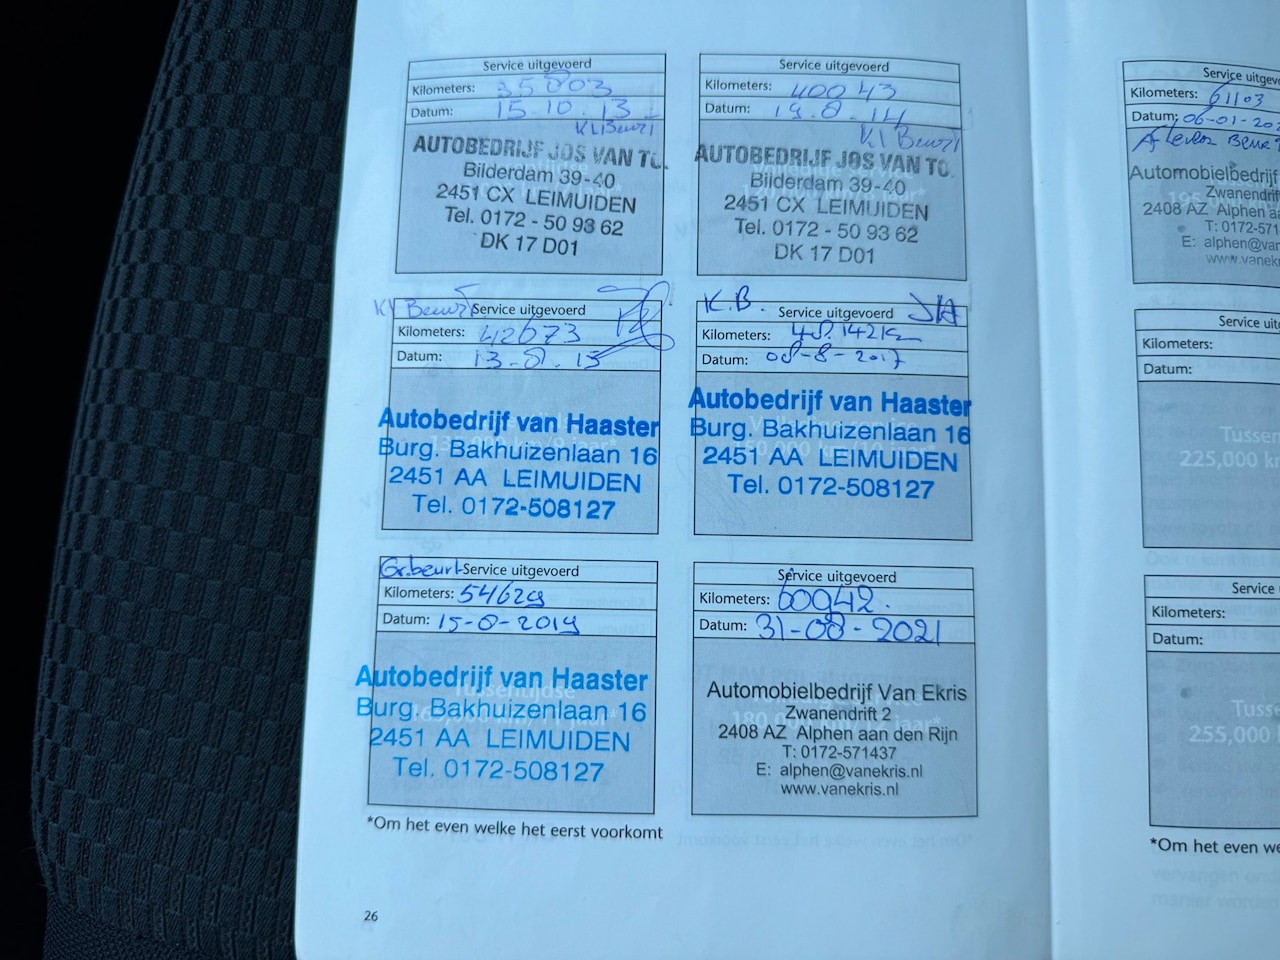 Service uitgevoerd
Kilometers: 35803
Datum: 15.10.13
Kl Beurt
AUTOBEDRIJF JOS VAN TO.
Bilderdam 39-40
2451 CX LEIMUIDEN
Tel. 0172 - 50 93 62
DK 17 D01
Service uitgevoerd
Kilometers: 40043
Datum: 19.8.14
Kl Beurt
AUTOBEDRIJF JOS VAN TO.
Bilderdam 39-40
2451 CX LEIMUIDEN
Tel. 0172 - 50 93 62
DK 17 D01
Kl Beurt Service uitgevoerd
Kilometers: 42673
Datum: 13-8.15
Autobedrijf van Haaster
Burg. Bakhuizenlaan 16
2451 AA LEIMUIDEN
Tel. 0172-508127
K.B. Service uitgevoerd
Kilometers: 48.142
Datum: 08-8-2017
Autobedrijf van Haaster
Burg. Bakhuizenlaan 16
2451 AA LEIMUIDEN
Tel. 0172-508127
Gr.beurt Service uitgevoerd
Kilometers: 54629
Datum: 15-8-2019
Autobedrijf van Haaster
Tussentijdse
Burg. Bakhuizenlaan 16
2451 AA LEIMUIDEN
Tel. 0172-508127
Service uitgevoerd
Kilometers: 60942.
Datum: 31-08-2021
Automobielbedrijf Van Ekris
Zwanendrift 2
180,000
2408 AZ Alphen aan den Rijn
T: 0172-571437
E: alphen@vanekris.nl
www.vanekris.nl
*Om het even welke het eerst voorkomt
26
Service uitgev
Kilometers: 61103
Datum: 06-01-20
Aflever Beurt
Automobielbedrijf
Zwanendrift
2408 AZ Alphen a
T: 0172-571
E: alphen@van
www.vanekri
Service uit
Kilometers:
Datum:
Tussen
225,000 k
Service
Kilometers:
Datum:
Tusse
255,000
*Om het even we